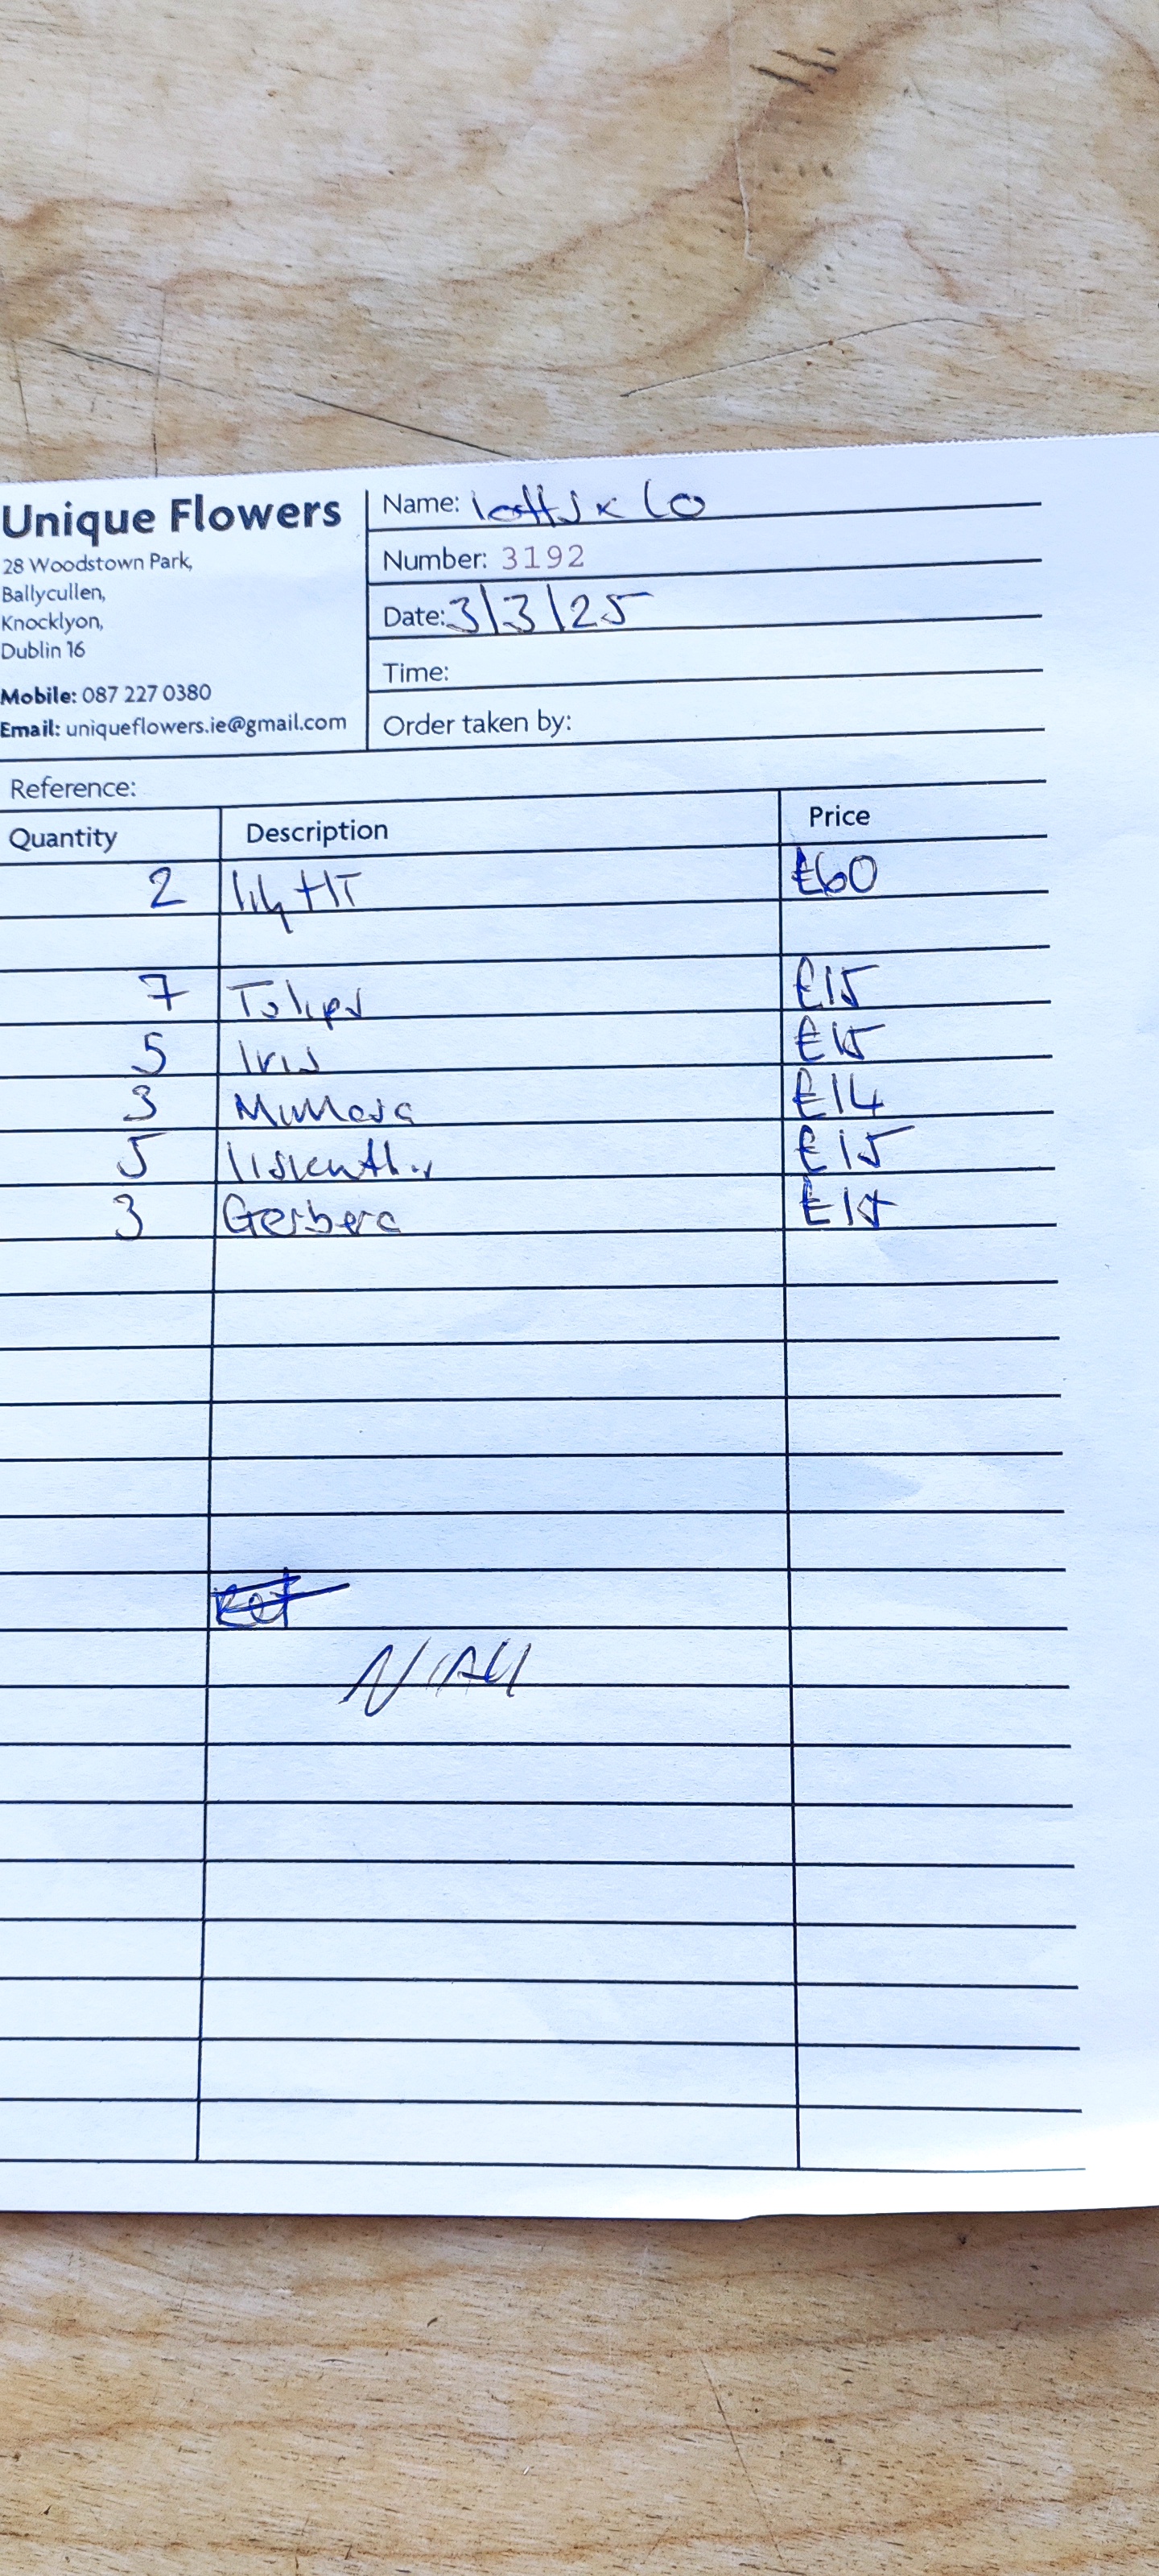 Unique Flowers
28 Woodstown Park,
Ballycullen,
Knocklyon,
Dublin 16
Mobile: 087 227 0380
Email: uniqueflowers.ie@gmail.com
Name: Lotts x Co
Number: 3192
Date: 3/3/25
Time:
Order taken by:
Reference:
Quantity Description Price
2 lily HT €60
7 Tulips €15
5 Iris €15
3 Mimosa €14
5 €15
3 Gerbera
NIALL